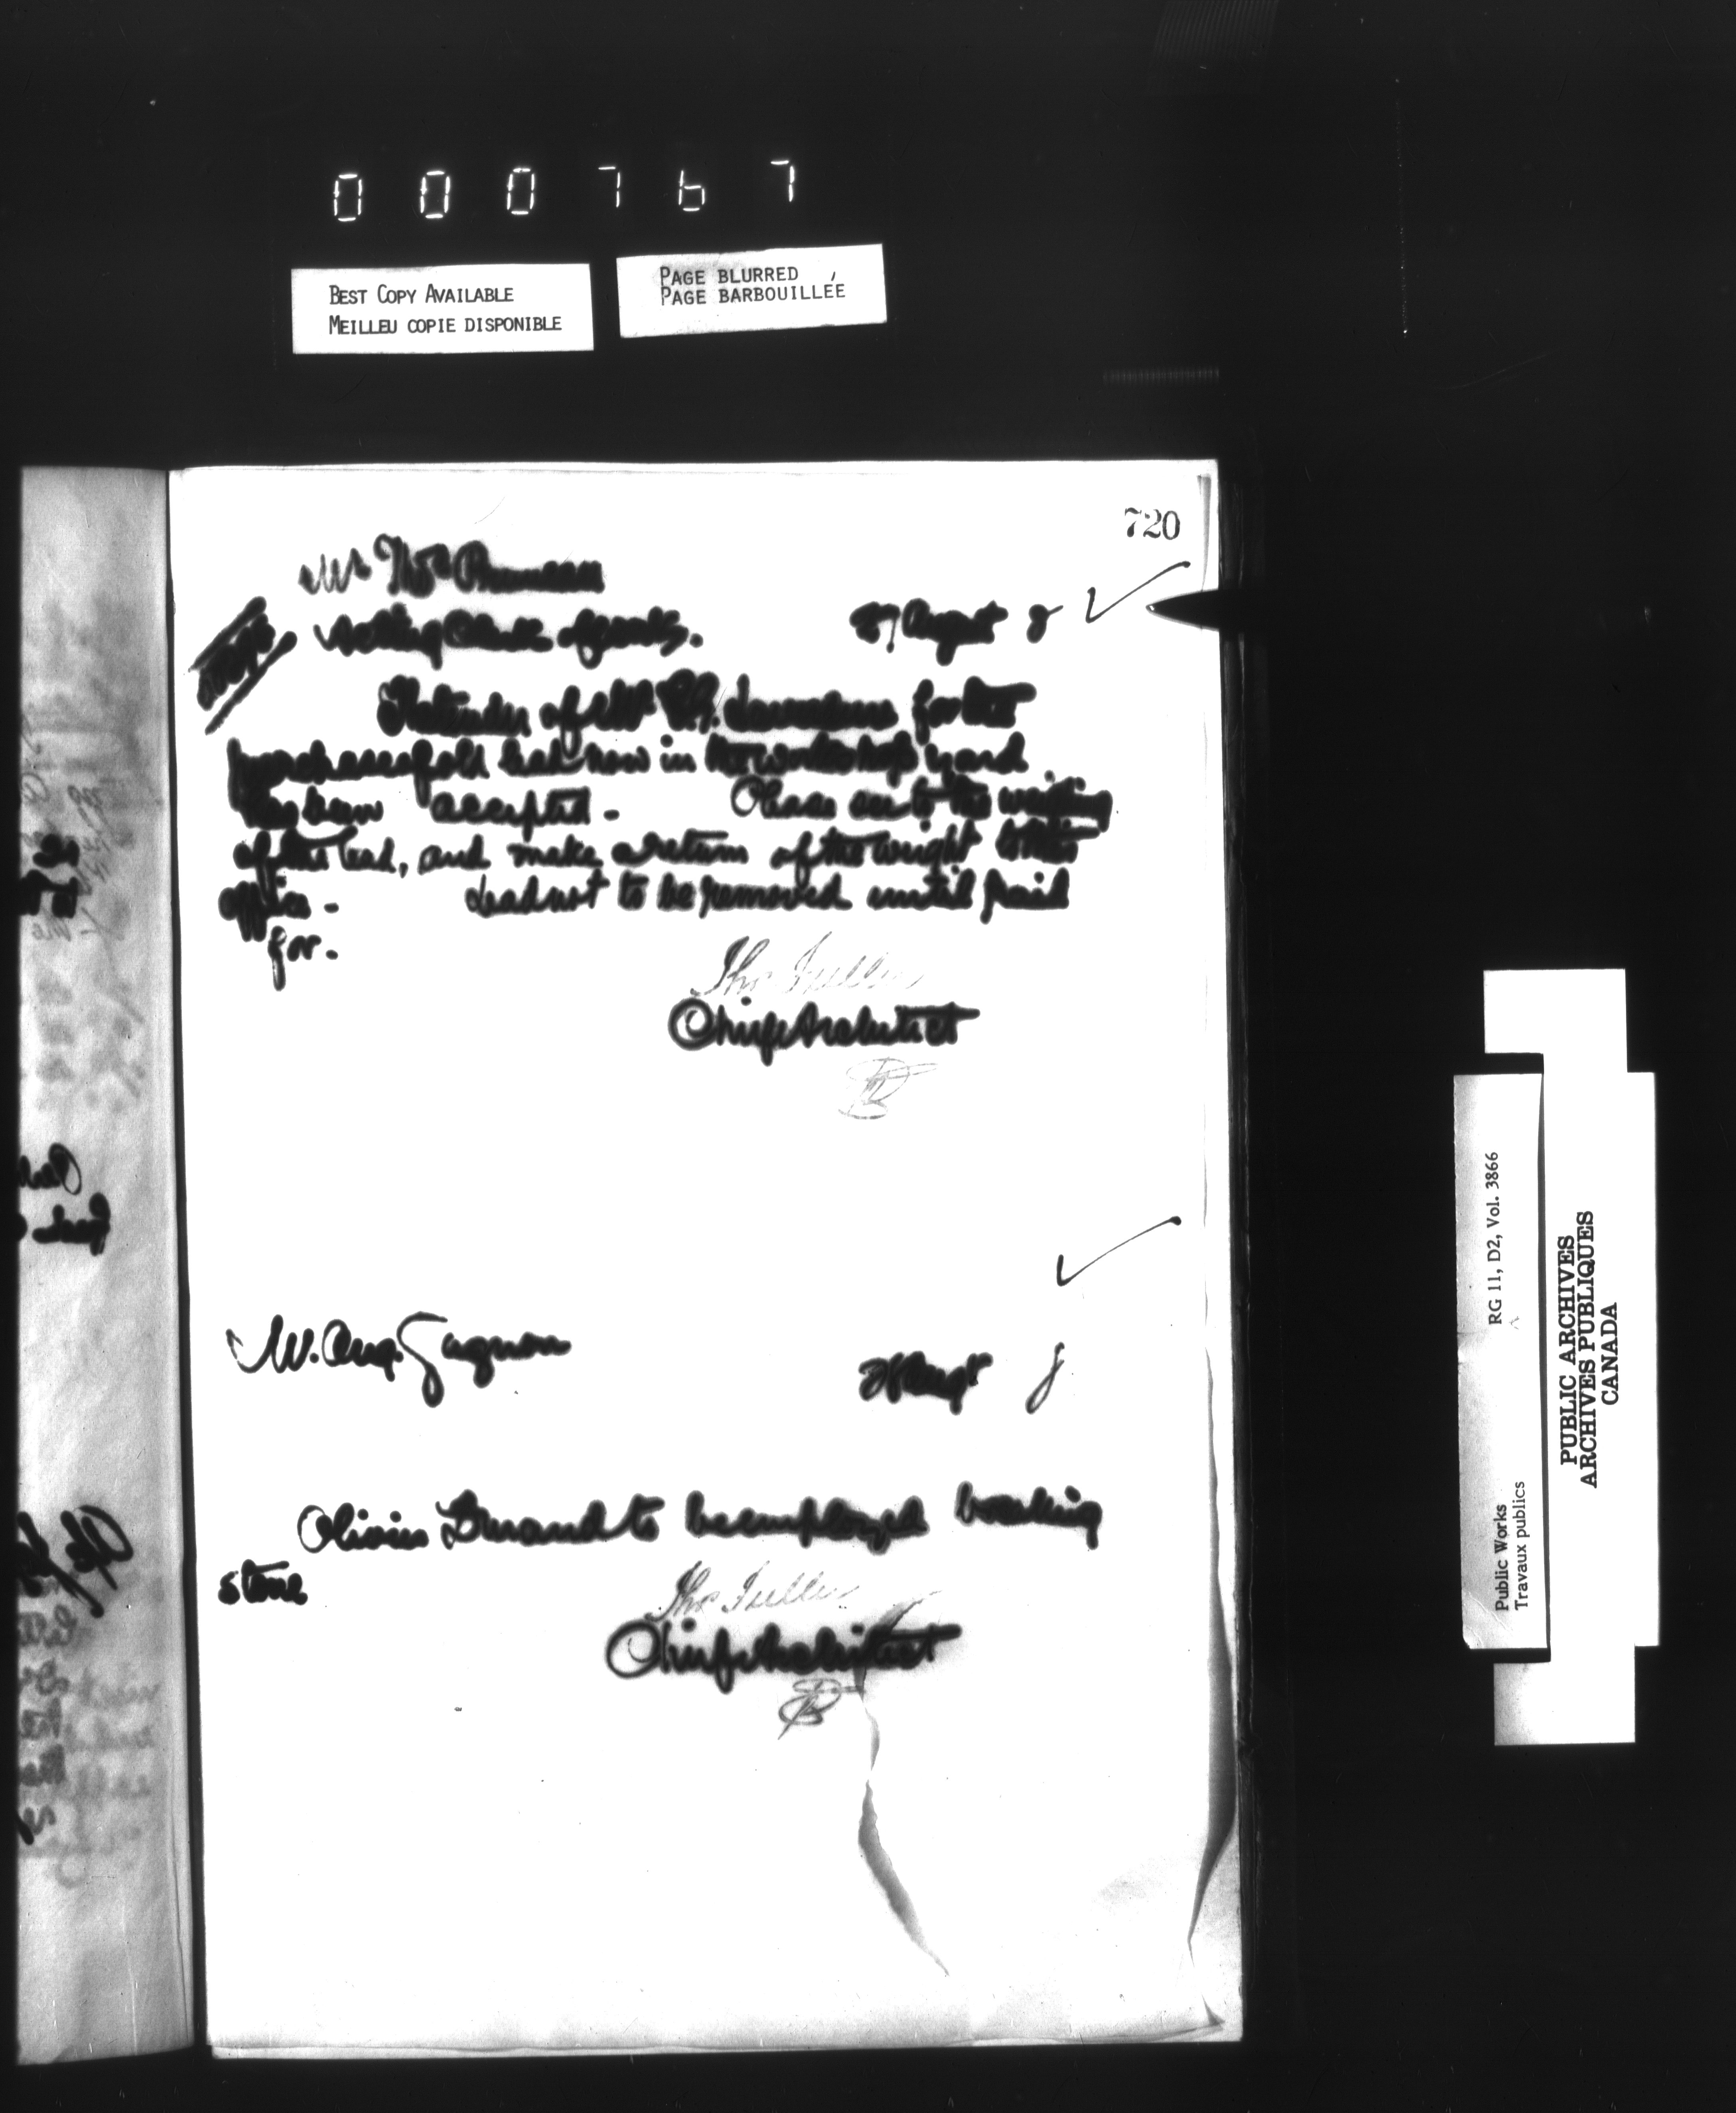 000767
BEST COPY AVAILABLE
MEILLEU COPIE DISPONIBLE
PAGE BLURRED
PAGE BARBOUILLÉE
720
Mr Thos
Acting Clerk of Works. 27 August 8
tender of Mr for the
purchase of old lead now in the workshop yard
has been accepted - Please see to the weighing
of the lead, and make a return of the weight to this
office - Lead not to be removed until paid
for.
Thos Fuller
Chief Architect
M. Aug. Gagnon
Augt 8
Olivier Durand to be employed breaking
stone
Thos Fuller
Chief Architect
Public Works RG 11, D2, Vol. 3866
Travaux publics
PUBLIC ARCHIVES
ARCHIVES PUBLIQUES
CANADA